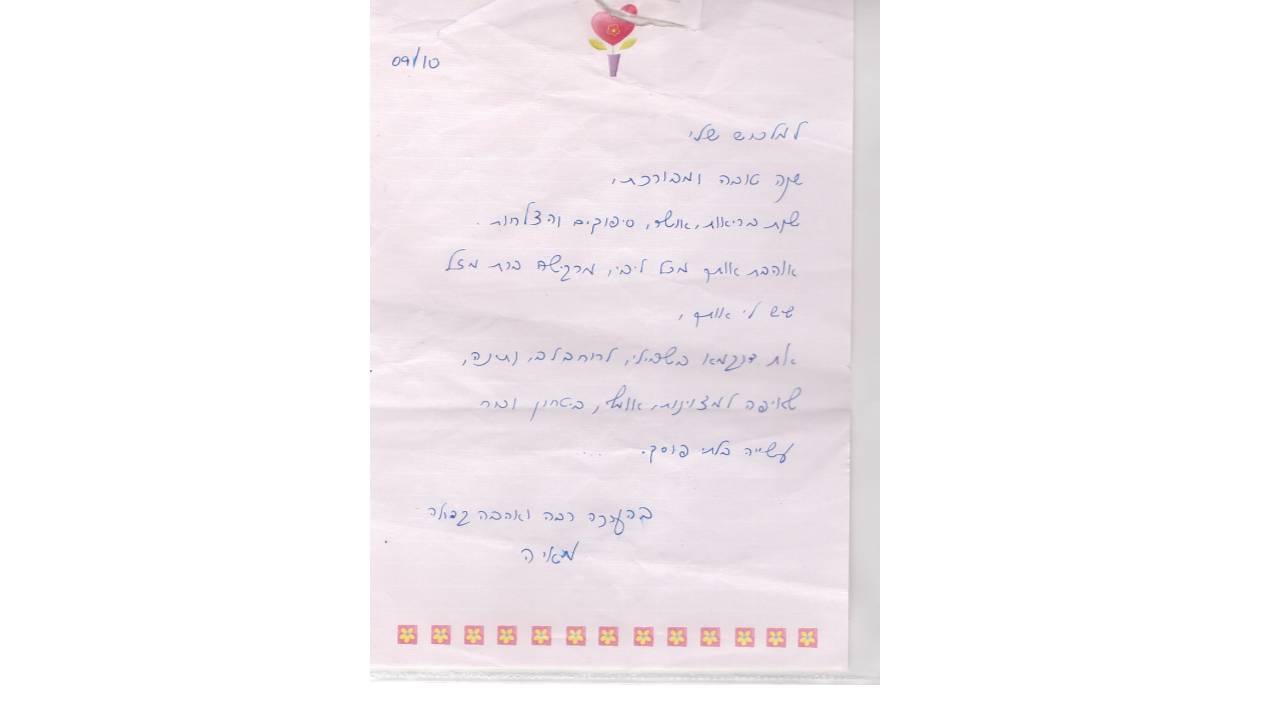 09/10
למלכוש שלי
שנה טובה ומבורכת,
שנת בריאות, אושר, סיפוקים והצלחות.
אוהבת אותך מכל ליבי, מרגישה ברת מזל
שיש לי אותך,
את דוגמא בשבילי, לרוחב לב, נתינה,
שאיפה למצוינות, אומץ, ביטחון וכוח
עשייה בלתי פוסק. ...
בהערכה רבה ואהבה גדולה
מאיה